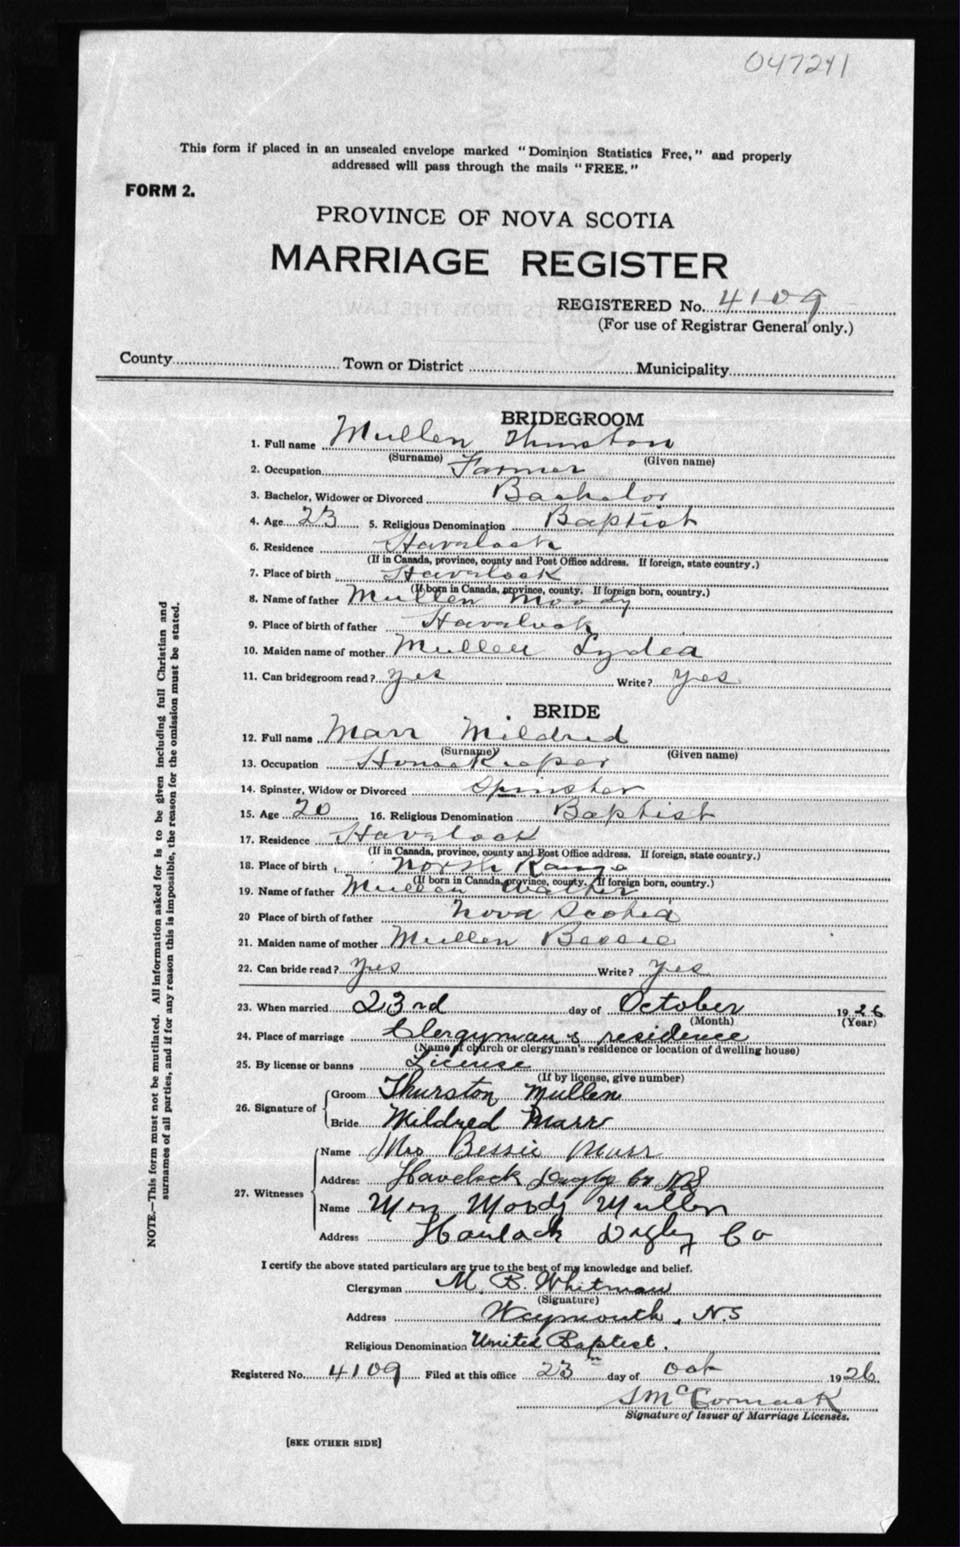 047241
This form if placed in an unsealed envelope marked "Dominion Statistics Free," and properly
addressed will pass through the mails "FREE."
FORM 2.
PROVINCE OF NOVA SCOTIA
MARRIAGE REGISTER
REGISTERED No. 4109
(For use of Registrar General only.)
County Town or District Municipality
BRIDEGROOM
1. Full name Mullen Thurston
(Surname) (Given name)
2. Occupation Farmer
3. Bachelor, Widower or Divorced Bachelor
4. Age 23 5. Religious Denomination Baptist
6. Residence Havelock
(If in Canada, province, county and Post Office address. If foreign, state country.)
7. Place of birth Havelock
(If born in Canada, province, county. If foreign born, country.)
8. Name of father Mullen Moody
9. Place of birth of father Havelock
10. Maiden name of mother Mullen Lydea
11. Can bridegroom read? yes Write? yes
BRIDE
12. Full name Marr Mildred
(Surname) (Given name)
13. Occupation Housekeeper
14. Spinster, Widow or Divorced Spinster
15. Age 20 16. Religious Denomination Baptist
17. Residence Havelock
(If in Canada, province, county and Post Office address. If foreign, state country.)
18. Place of birth North Range
(If born in Canada, province, county. If foreign born, country.)
19. Name of father Mullen Walter
20 Place of birth of father Nova Scotia
21. Maiden name of mother Mullen Bessie
22. Can bride read? yes Write? yes
23. When married 23rd day of October 1926
(Month) (Year)
24. Place of marriage Clergyman's residence
(Name of church or clergyman's residence or location of dwelling house)
25. By license or banns License
(If by license, give number)
26. Signature of
Groom Thurston Mullen
Bride Mildred Marr
27. Witnesses
Name Mrs Bessie Marr
Address Havelock Digby Co NS
Name Mrs Moody Mullen
Address Havlock Digby Co
I certify the above stated particulars are true to the best of my knowledge and belief.
Clergyman M. B. Whitman
(Signature)
Address Weymouth, N.S
Religious Denomination United Baptist.
Registered No. 4109 Filed at this office 23 day of Oct 1926
S McCormack
Signature of Issuer of Marriage Licenses.
[SEE OTHER SIDE]
NOTE.—This form must not be mutilated. All information asked for is to be given including full Christian and
surnames of all parties, and if for any reason this is impossible, the reason for the omission must be stated.